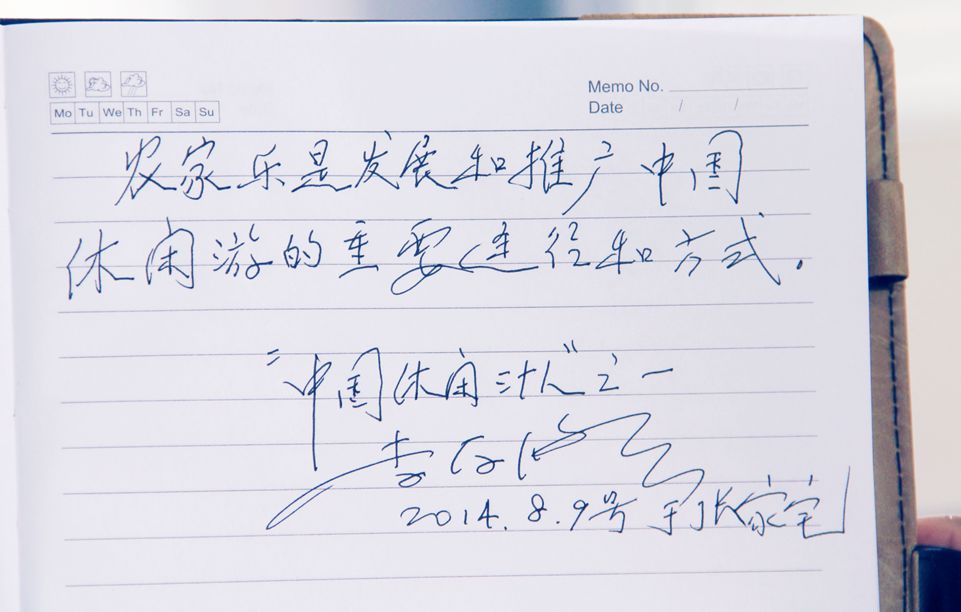 Memo No.
Mo Tu We Th Fr Sa Su
Date / /
农家乐是发展和推广中国
休闲游的重要途径和方式.
"中国休闲三十人"之一
李
2014.8.9号 于张家宅